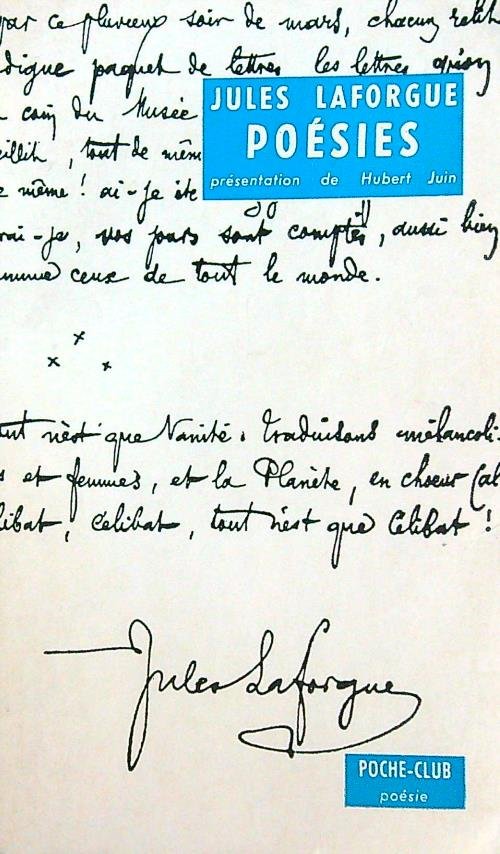 par ce pluvieux soir de mars, chacun
digue paquet de lettres les lettres qu'on
coin du Musée
JULES LAFORGUE
eillit, tout de mêm
POÉSIES
e même ! ai-je été
présentation de Hubert Juin
rai-je, vos jours sont comptés, aussi bien
omme ceux de tout le monde.
x
x x
out n'est que Vanité. Traduisons mélancoli-
s et femmes, et la Planète, en chœur
libat, célibat, tout n'est que Célibat !
Jules Laforgue
POCHE-CLUB
poésie